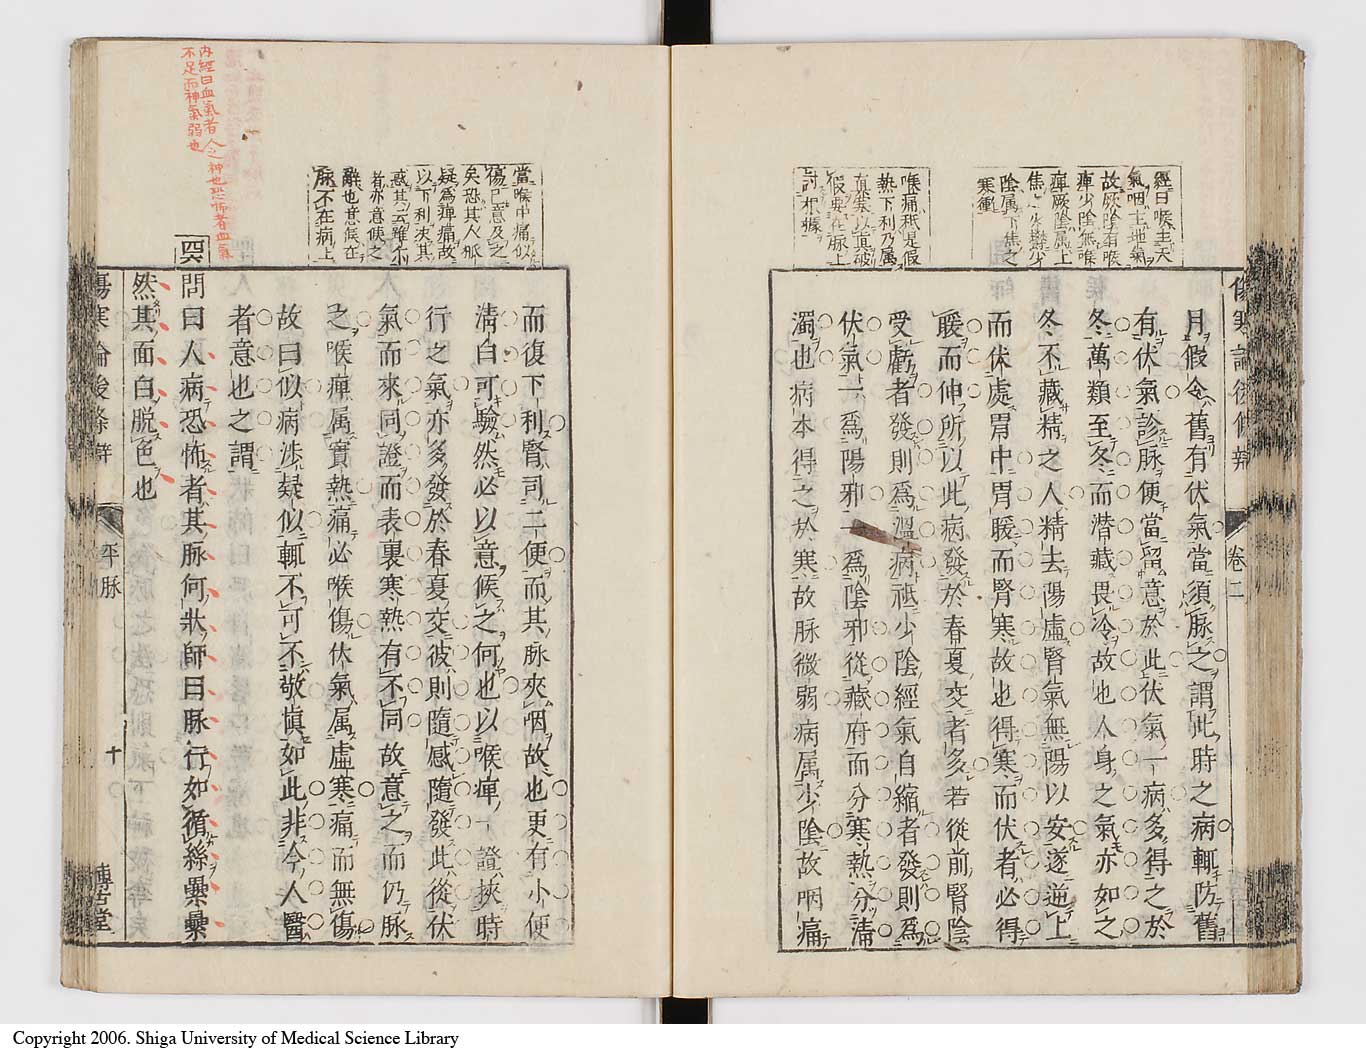 傷寒論後條辨
卷二
經曰喉主天
氣咽主地氣
故厥陰有喉
痺少陰無喉
痺厥陰属上
焦少陰
陰属下焦之
寒衝
喉痛秪是假
熱下利乃属
真寒以真破
假要在脉上
討根據
月假令舊有伏氣當須脉之謂此時之病輒防舊
有伏氣診脉便當留意於此伏氣一病多得之於
冬萬類至冬而潜藏畏冷故也人身之氣亦如之
冬不藏精之人精去陽虛腎氣無陽以安遂逆上
而伏處胃中胃暖而腎寒故也得寒而伏者必得
暖而伸所以此病發於春夏交者多若從前腎陰
受虧者發則爲溫病祗少陰經氣自縮者發則爲
伏氣一爲陽邪一爲陰邪從藏府而分寒熱分清
濁也病本得之於寒故脉微弱病属少陰故咽痛
當喉中痛似
傷已意及之
矣恐其人秪
疑爲痺痛故
以下利夾其
惑其云雖
者亦意候之
辭也意候在
脉不在病上
而復下利腎司二便而其脉夾咽故也更有小便
清白可驗然必以意候之何也以喉痺一證挾時
行之氣亦多發於春夏交彼則隨感隨發此從伏
氣而來同證而表裏寒熱有不同故意之而仍脉
之喉痺属實熱痛必喉傷伏氣属虛寒痛而無傷
故曰似病涉疑似輒不可不敬愼如此非今人醫
者意也之謂
內經曰血氣者人之神也恐怖者血氣
不足而神氣弱也
問曰人病恐怖者其脉何狀師曰脉行如循絲纍纍
然其面白脱色也
傷寒論後條辨
平脉
十
博古堂
Copyright 2006. Shiga University of Medical Science Library